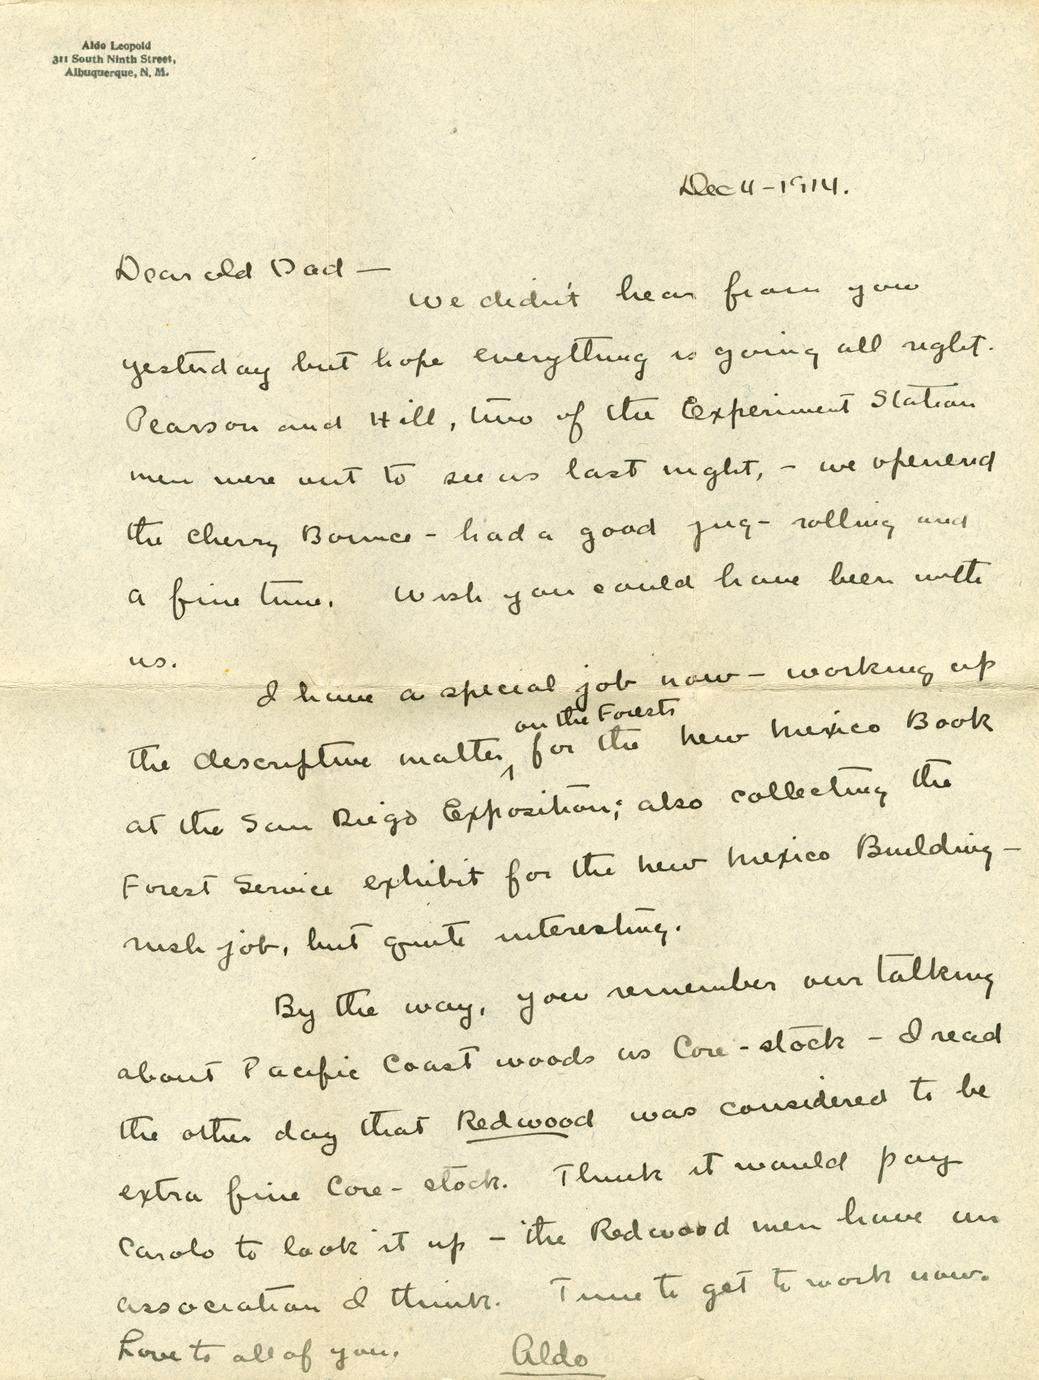 Aldo Leopold
311 South Ninth Street,
Albuquerque, N. M.
Dec 4 - 1914.
Dear old Dad —
We didn't hear from you
yesterday but hope everything is going all right.
Pearson and Hill, two of the Experiment Station
men were out to see us last night, - we openend
the Cherry Bounce - had a good jug-rolling and
a fine time. Wish you could have been with
us.
I have a special job now — working up
on the Forests
the descriptive matter for the New Mexico Book
at the San Diego Exposition; also collecting the
Forest Service exhibit for the New Mexico Building —
rush job, but quite interesting.
By the way, you remember our talking
about Pacific Coast woods as Core-stock - I read
the other day that Redwood was considered to be
extra fine Core-stock. Think it would pay
Carolo to look it up - the Redwood men have an
association I think. Time to get to work now.
Love to all of you.
Aldo